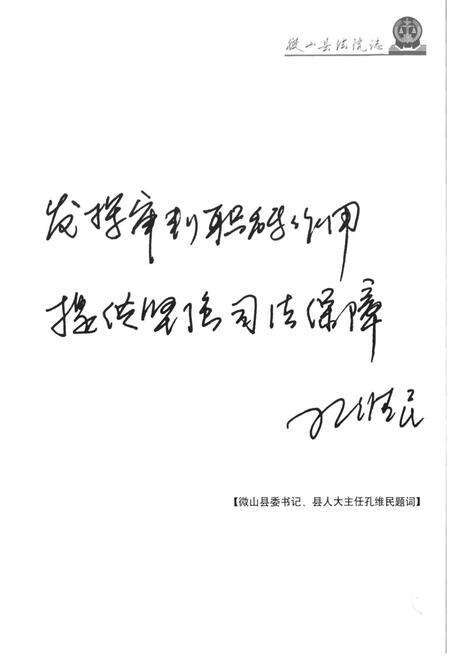 微山县法院志
发挥审判职能作用
提供坚强司法保障
孔维民
【微山县委书记、县人大主任孔维民题词】